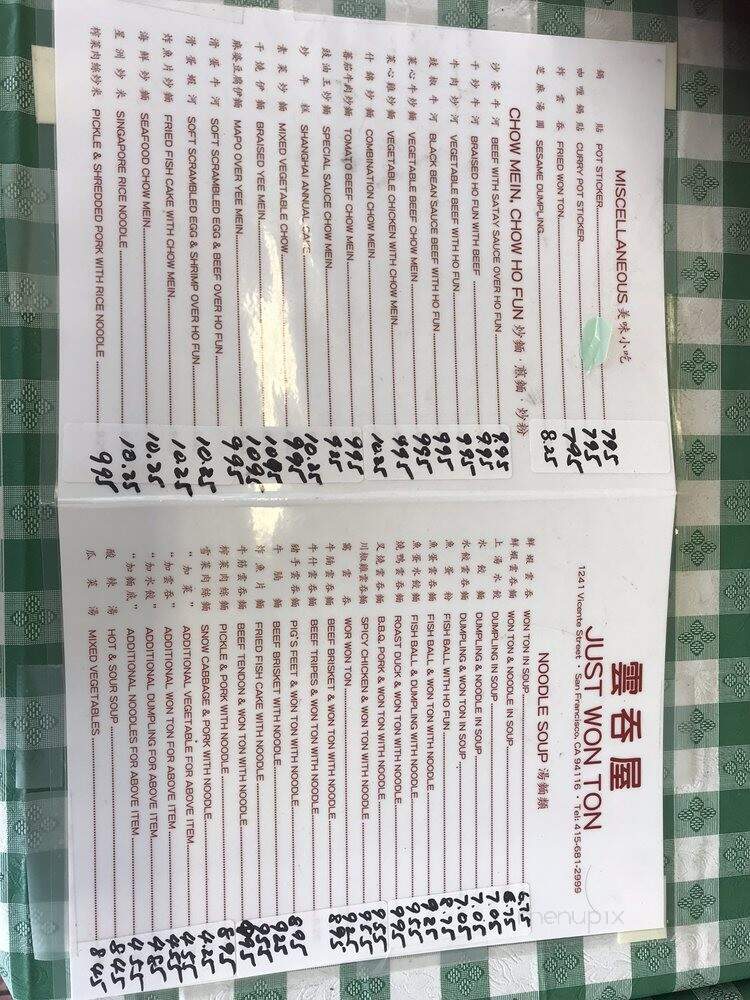 MISCELLANEOUS 美味小吃
鍋貼 POT STICKER 795
咖喱鍋貼 CURRY POT STICKER 795
炸雲吞 FRIED WON TON 795
芝麻湯圓 SESAME DUMPLING 8.25
CHOW MEIN, CHOW HO FUN 炒麵·煎麵·炒粉
沙茶牛河 BEEF WITH SATAY SAUCE OVER HO FUN 995
干炒牛河 BRAISED HO FUN WITH BEEF 995
牛肉炒河 VEGETABLE BEEF WITH HO FUN 995
豉椒牛河 BLACK BEAN SAUCE BEEF WITH HO FUN 995
菜心牛炒麵 VEGETABLE BEEF CHOW MEIN 995
菜心雞炒麵 VEGETABLE CHICKEN WITH CHOW MEIN 995
什錦炒麵 COMBINATION CHOW MEIN 10.25
蕃茄牛肉炒麵 TOMATO BEEF CHOW MEIN 995
豉油王炒麵 SPECIAL SAUCE CHOW MEIN 925
炒年糕 SHANGHAI ANNUAL CAKE 10.25
素菜炒麵 MIXED VEGETABLE CHOW 995
干燒伊麵 BRAISED YEE MEIN 1095
麻婆豆腐伊麵 MAPO OVER YEE MEIN 1095
滑蛋牛河 SOFT SCRAMBLED EGG & BEEF OVER HO FUN 995
滑蛋蝦河 SOFT SCRAMBLED EGG & SHRIMP OVER HO FUN 10.25
炸魚片炒麵 FRIED FISH CAKE WITH CHOW MEIN 10.25
海鮮炒麵 SEAFOOD CHOW MEIN 10.25
星洲炒米 SINGAPORE RICE NOODLE 10.25
榨菜肉絲炒米 PICKLE & SHREDDED PORK WITH RICE NOODLE 995
雲吞屋
JUST WON TON
1241 Vicente Street · San Francisco, CA 94116 · Tel: 415-681-2999
NOODLE SOUP 湯麵類
鮮蝦雲吞 WON TON IN SOUP 6.75
鮮蝦雲吞麵 WON TON & NOODLE IN SOUP 6.75
上湯水餃 DUMPLING IN SOUP 7.05
水餃麵 DUMPLING & NOODLE IN SOUP 7.05
水餃雲吞麵 DUMPLING & WON TON IN SOUP 7.05
魚蛋粉 FISH BALL WITH HO FUN 8.75
魚蛋雲吞麵 FISH BALL & WON TON WITH NOODLE 9.25
魚蛋水餃麵 FISH BALL & DUMPLING WITH NOODLE 9.25
燒鴨雲吞麵 ROAST DUCK & WON TON WITH NOODLE 995
叉燒雲吞麵 B.B.Q. PORK & WON TON WITH NOODLE 9.55
川椒雞雲吞麵 SPICY CHICKEN & WON TON WITH NOODLE
窩雲吞 WOR WON TON
牛腩雲吞麵 BEEF BRISKET & WON TON WITH NOODLE
牛什雲吞麵 BEEF TRIPES & WON TON WITH NOODLE
豬手雲吞麵 PIG'S FEET & WON TON WITH NOODLE 895
牛腩麵 BEEF BRISKET WITH NOODLE 925
炸魚片麵 FRIED FISH CAKE WITH NOODLE 955
牛筋雲吞麵 BEEF TENDON & WON TON WITH NOODLE
榨菜肉絲麵 PICKLE & PORK WITH NOODLE 895
雪菜肉絲麵 SNOW CABBAGE & PORK WITH NOODLE
"加菜" ADDITIONAL VEGETABLE FOR ABOVE ITEM
"加雲吞" ADDITIONAL WON TON FOR ABOVE ITEM
"加水餃" ADDITIONAL DUMPLING FOR ABOVE ITEM 4.85
"加麵底" ADDITIONAL NOODLES FOR ABOVE ITEM 4.55
酸辣湯 HOT & SOUR SOUP 8.45
瓜菜湯 MIXED VEGETABLES 8.45
menupix